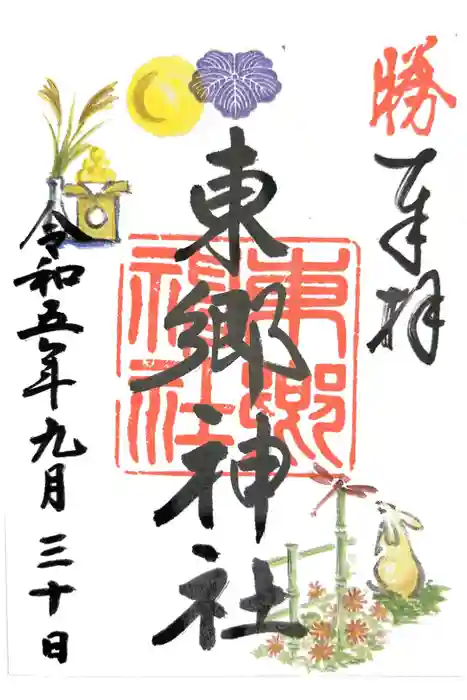 勝
奉拝
東郷神社
東郷
神社
令和五年九月三十日